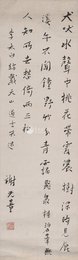 犬吠水聲中桃花帶露濃樹深時見鹿
溪午不聞鐘野竹分青靄飛泉挂碧峰無
人知所去愁倚兩三松
李太白訪戴天山道士不遇
謝无量